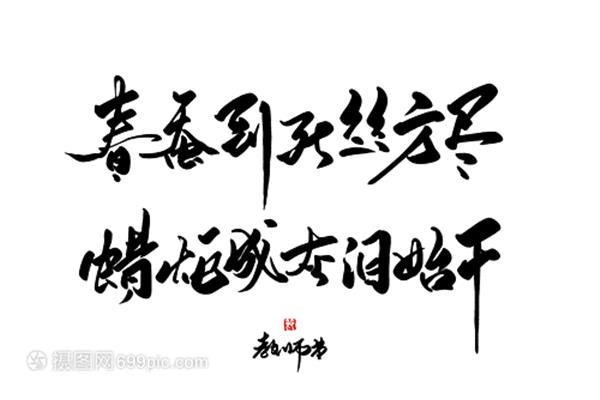 春蚕到死丝方尽
蜡炬成灰泪始干
教师节
摄图网699pic.com